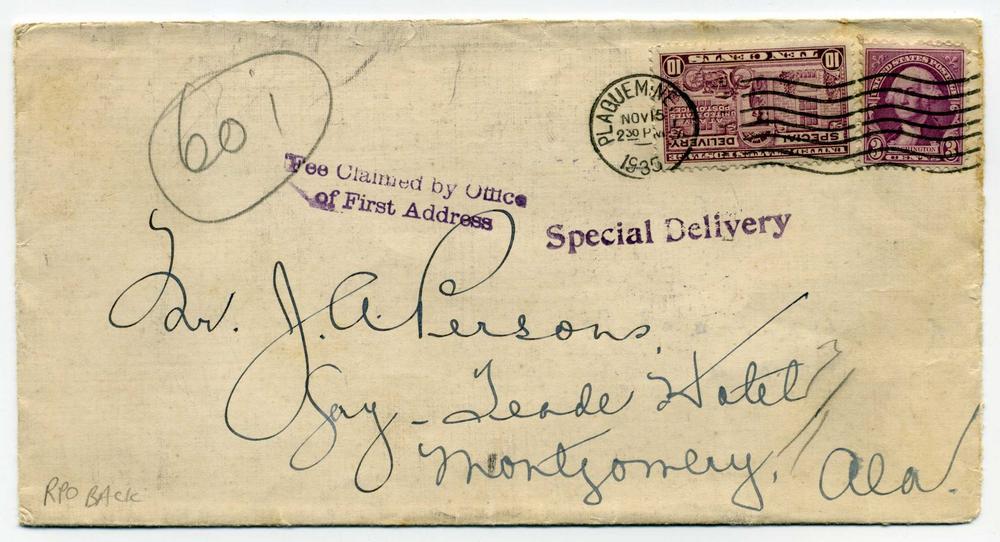 601
TEN CENTS
10 10
UNITED STATES POSTAGE
SPECIAL
DELIVERY
UNITED STATES
POST OFFICE
UNITED STATES POSTAGE
WASHINGTON
3 3
CENTS
PLAQUEMINE
NOV 15
2 30 PM
1935
Fee Claimed by Office
of First Address
Special Delivery
Mr. J. A. Persons,
Gay-Teade Hotel
Montgomery, Ala.
RPO BACK